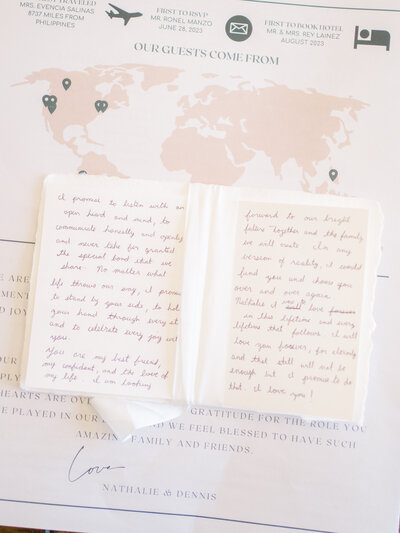 TRAVELED
MRS. EVENCIA SALINAS
8737 MILES FROM
PHILIPPINES
FIRST TO RSVP
MR. RONEL MANZO
JUNE 28, 2023
FIRST TO BOOK HOTEL
MR. & MRS. REY LAINEZ
AUGUST 2023
OUR GUESTS COME FROM
I promise to listen with an
open heart and mind, to
communicate honestly and openly
and never take for granted
the special bond that we
share. No matter what
life throws our way, I promise
to stand by your side, to hold
your hand through every st
and to celebrate every joy wit
you.
You are my best friend,
my confidant, and the love of
my life. I am looking
forward to our bright
future together and the family
we will create. In any
version of reality, I would
find you and choose you
over and over again.
Nathalie I vow to love forever
in this lifetime and every
lifetime that follows. I will
love you forever, for eternity
and that still will not be
enough but I promise to do
that. I love you!
E ARE
MENT
ND JOY
OUR
PLY
HEARTS ARE OVE GRATITUDE FOR THE ROLE YOU
E PLAYED IN OUR ND WE FEEL BLESSED TO HAVE SUCH
AMAZIN FAMILY AND FRIENDS.
Love
NATHALIE & DENNIS